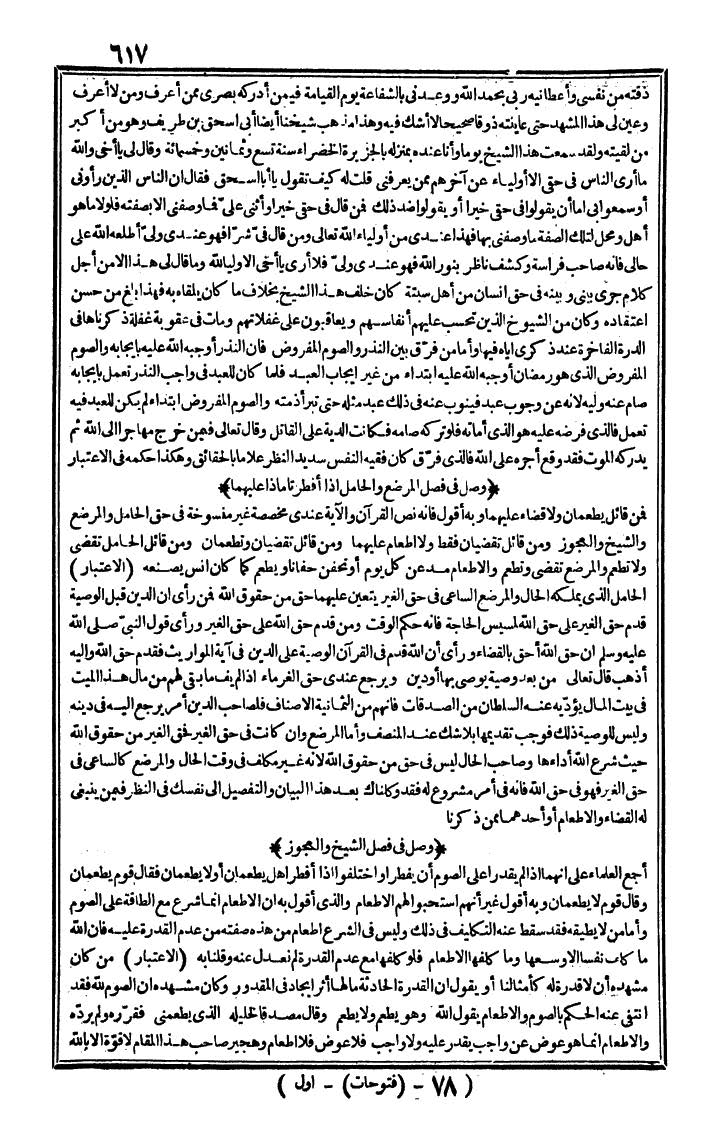 ٦١٧
ذقته من نفسى وأعطانيه ربى بحمد الله ووعدنى بالشفاعة يوم القيامة فيمن أدركه بصرى ممن أعرف ومن لا أعرف
وعين لى هذا المشهد حتى عاينته ذوقا صحيحا لا أشك فيه وهذا مذهب شيخنا أيضا أبى اسحق بن طريف وهو من أكبر
من لقيته ولقد سمعت هذا الشيخ يوما وأنا عنده بمنزله بالجزيرة الخضراء سنة تسع وثمانين وخمسمائة وقال لى يا أخى والله
ما أرى الناس فى حقى الا أولياء عن آخرهم ممن يعرفنى قلت له كيف تقول يا أبا اسحق فقال ان الناس الذين رأونى
أو سمعوا بى اما أن يقولوا فى حقى خيرا أو يقولوا ضد ذلك فمن قال فى حقى خيرا وأثنى علىّ فما وصفنى الا بصفته فلولا ما هو
أهل ومحل لتلك الصفة ما وصفنى بها فهذا عندى من أولياء الله تعالى ومن قال فىّ شرّا فهو عندى ولىّ أطلعه الله على
حالى فانه صاحب فراسة وكشف ناظر بنور الله فهو عندى ولىّ فلا أرى يا أخى الا ولياء لله وما قال لى هذا الا من أجل
كلام جرى بينى وبينه فى حق انسان من أهل سبتة كان خلف هذا الشيخ بخلاف ما كان يلقاه به فهذا بلغ من حسن
اعتقاده وكان من الشيوخ الذين تحسب عليهم أنفاسهم ويعاقبون على غفلاتهم ومات فى عقوبة غفلة ذكرناها فى
الدرة الفاخرة عند ذكرى اياه فيها وأما من فرّق بين النذر والصوم المفروض فان النذر أوجبه الله عليه بايجابه والصوم
المفروض الذى هو رمضان أوجبه الله عليه ابتداء من غير ايجاب العبد فلما كان للعبد فى واجب النذر تعمل بايجابه
صام عنه وليه لانه عن وجوب عبد فينوب عنه فى ذلك عبد مثله حتى تبرأ ذمته والصوم المفروض ابتداء لم يكن للعبد فيه
تعمل فالذى فرضه عليه هو الذى أماته فلو تركه صامه فكانت الدية على القاتل وقال تعالى فيمن خرج مهاجرا الى الله ثم
يدركه الموت فقد وقع أجره على الله فالذى فرّق كان فقيه النفس سديد النظر علاما بالحقائق وهكذا حكمه فى الاعتبار
﴿وصل فى فصل المرضع والحامل اذا أفطرتا ماذا عليهما﴾
فمن قائل يطعمان ولا قضاء عليهما وبه أقول فانه نص القرآن والآية عندى مخصصة غير منسوخة فى حق الحامل والمرضع
والشيخ والعجوز ومن قائل تقضيان فقط ولا اطعام عليهما ومن قائل تقضيان وتطعمان ومن قائل الحامل تقضى
ولا تطعم والمرضع تقضى وتطعم والاطعام مد عن كل يوم أو تحفن حفانا ويطعم كما كان انس يصنعه (الاعتبار)
الحامل الذى يملكه الحال والمرضع الساعى فى حق الغير يتعين عليهما حق من حقوق الله فمن رأى ان الدين قبل الوصية
قدم حق الغير على حق الله لمسيس الحاجة فانه حكم الوقت ومن قدم حق الله على حق الغير ورأى قول النبىّ صلى الله
عليه وسلم ان حق الله أحق بالقضاء ورأى أن الله قدم فى القرآن الوصية على الدين فى آية المواريث فقدم حق الله واليه
أذهب قال تعالى من بعد وصية يوصى بها أو دين ويرجع عندى حق الغرماء اذا لم يف ما بقى لهم من مال هذا الميت
فى بيت المال يؤدّيه عنه السلطان من الصدقات فانهم من الثمانية الاصناف فلصاحب الدين أمر يرجع اليه فى دينه
وليس للوصية ذلك فوجب تقديمها بلا شك عند المنصف وأما المرضع وان كانت فى حق الغير فحق الغير من حقوق الله
حيث شرع الله أداءها وصاحب الحال ليس فى حق من حقوق الله لانه غير مكلف فى وقت الحال والمرضع كالساعى فى
حق الغير فهو فى حق الله فانه فى أمر مشروع له فقد وكلناك بعد هذا البيان والتفصيل الى نفسك فى النظر فيمن ينبغى
له القضاء والاطعام أو أحدهما ممن ذكرنا
﴿وصل فى فصل الشيخ والعجوز﴾
أجمع العلماء على انهما اذا لم يقدرا على الصوم أن يفطرا واختلفوا اذا أفطرا هل يطعمان أو لا يطعمان فقال قوم يطعمان
وقال قوم لا يطعمان وبه أقول غير أنهم استحبوا لهم الاطعام والذى أقول به ان الاطعام انما شرع مع الطاقة على الصوم
وأما من لا يطيقه فقد سقط عنه التكليف فى ذلك وليس فى الشرع اطعام من هذه صفته من عدم القدرة عليه فان الله
ما كلف نفسا الا وسعها وما كلفها الاطعام فلو كلفها مع عدم القدرة لم نعدل عنه وقلنا به (الاعتبار) من كان
مشهده أن لا قدرة له كأمثالنا أو يقول ان القدرة الحادثة ما لها أثر ايجاد فى المقدور وكان مشهده ان الصوم لله فقد
انتفى عنه الحكم بالصوم والاطعام يقول الله وهو يطعم ولا يطعم وقال مصدقا لخليله الذى يطعمنى فقرّره ولم يردّه
والاطعام انما هو عوض عن واجب يقدر عليه ولا واجب فلا عوض فلا اطعام وهجير صاحب هذا المقام لا قوّة الا بالله
(٧٨ - (فتوحات) - اول)